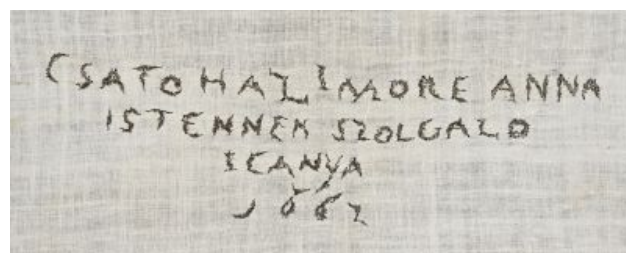 CSATOHAZI MORE ANNA
ISTENNEK SZOLGALO
LEANYA
1662